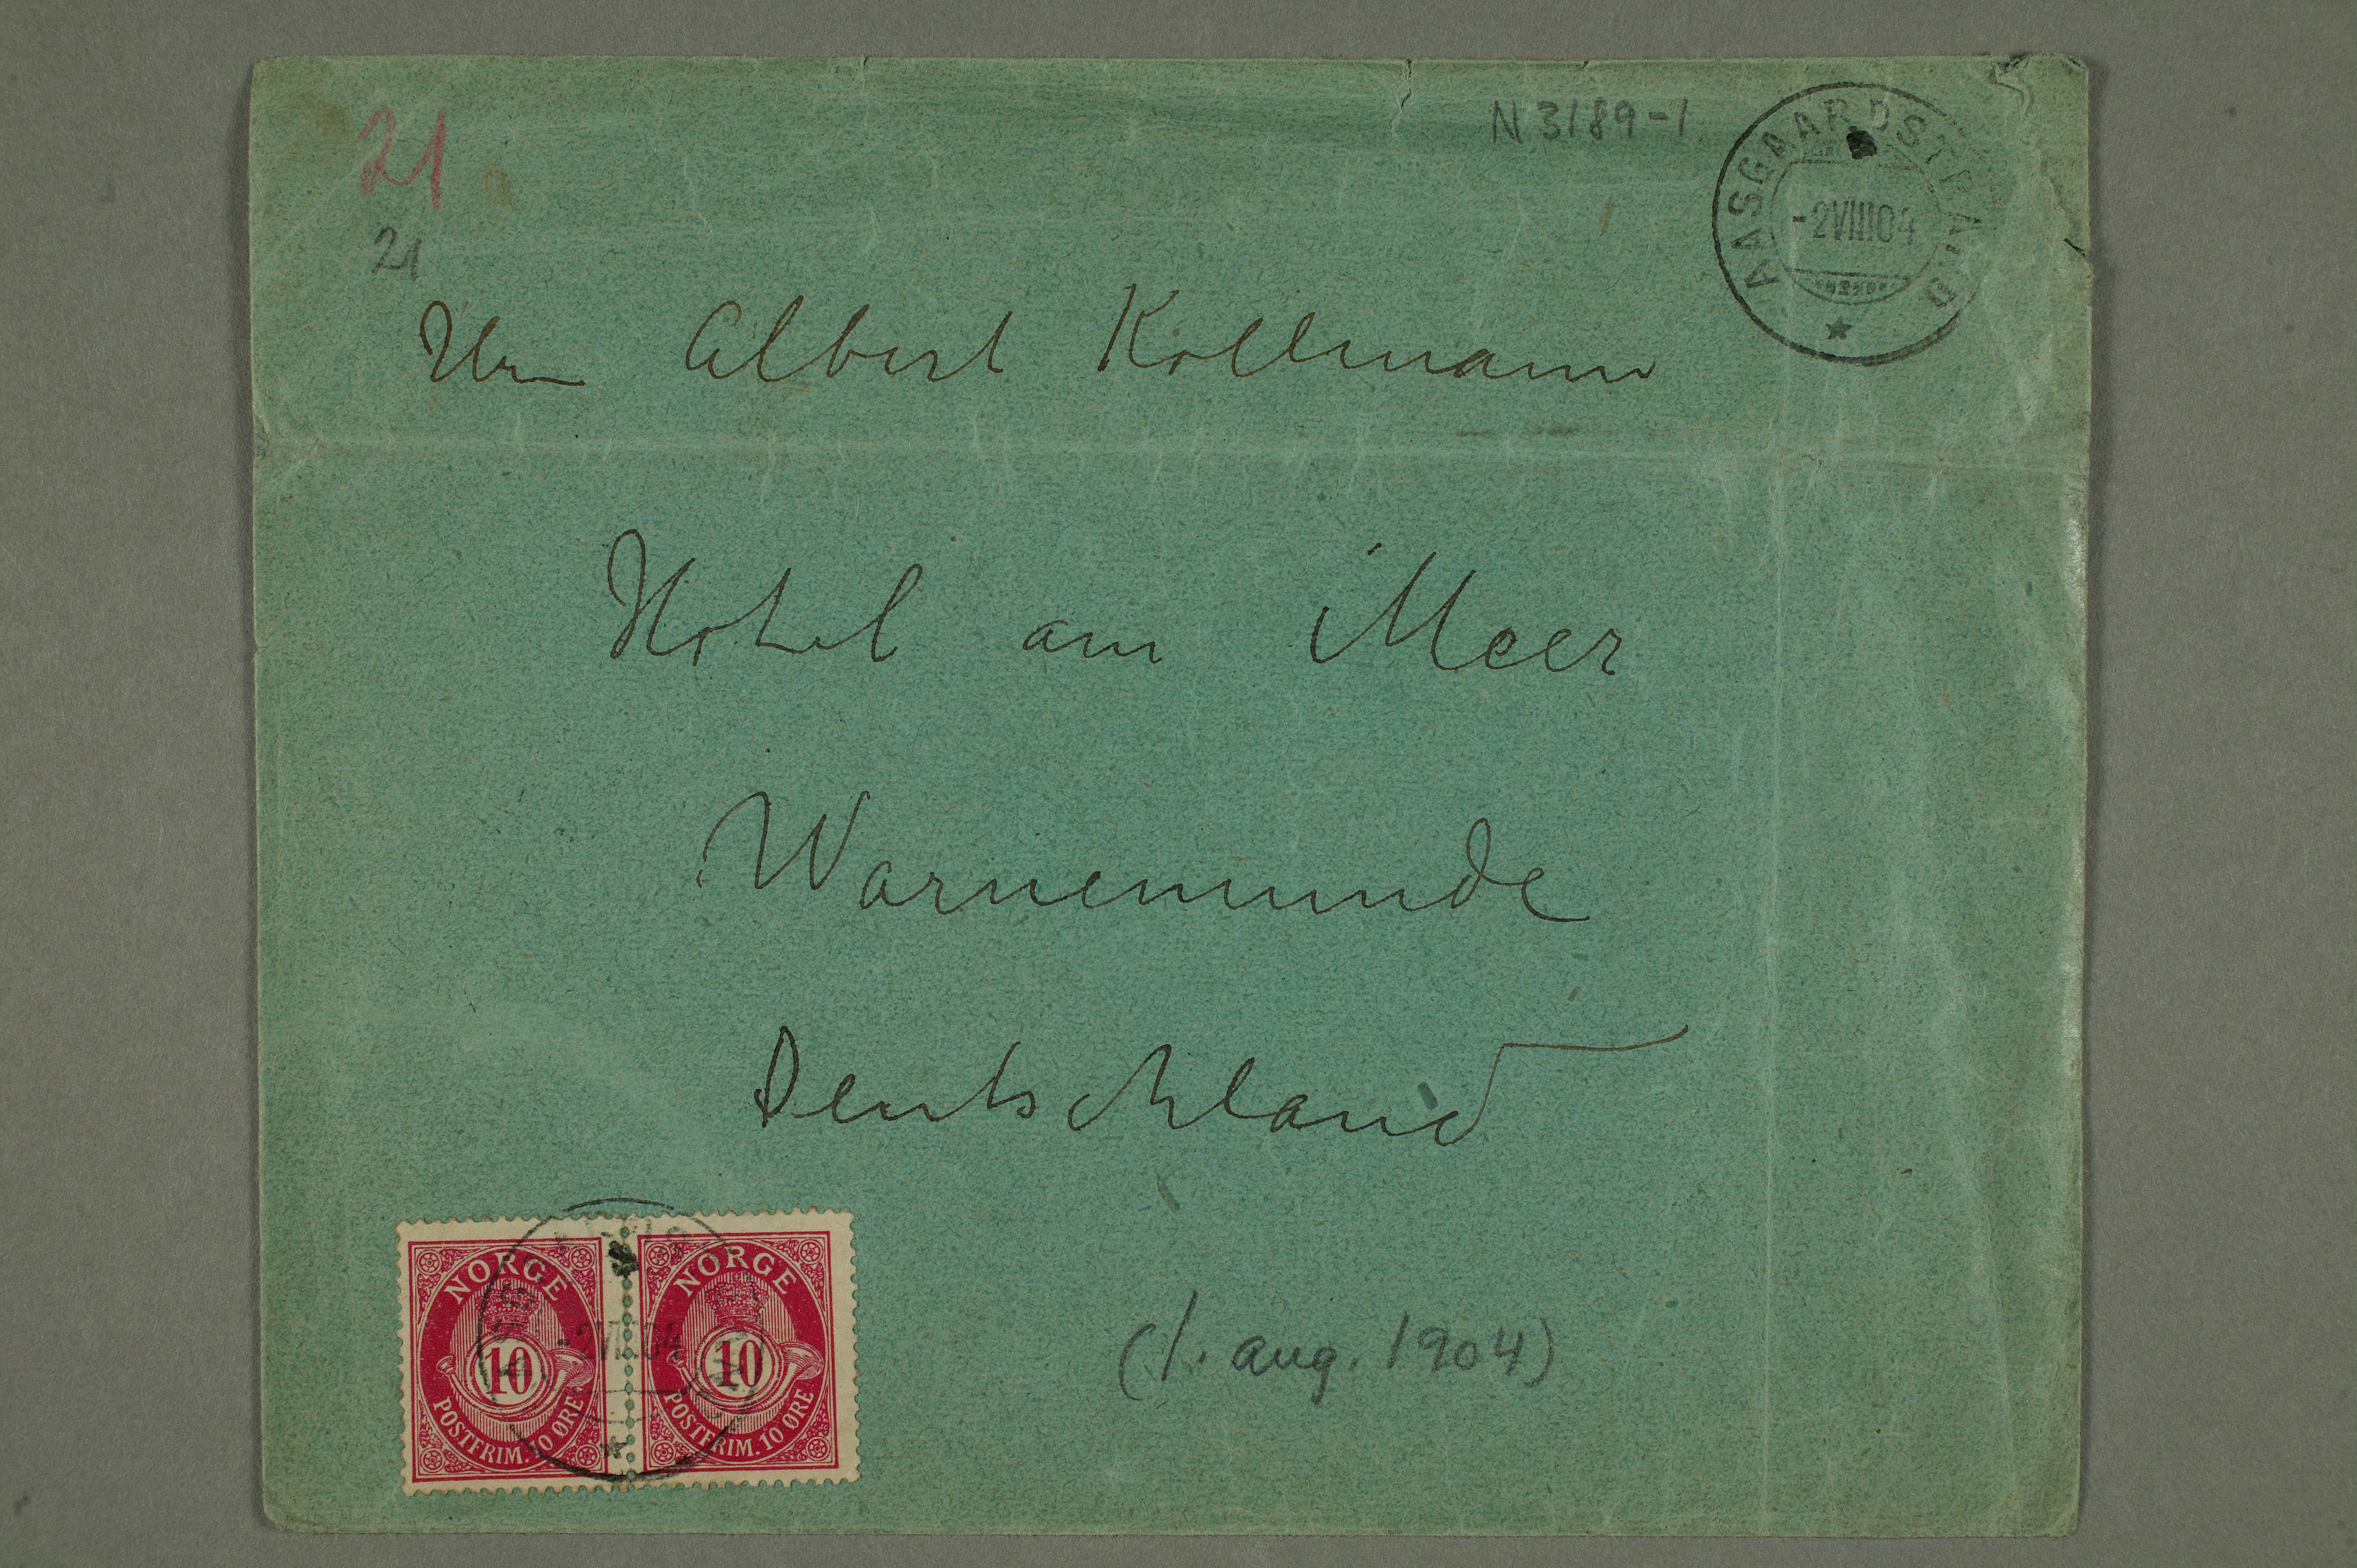 21
N 3189-1
AASGAARDSTRAND
-2VIII04
21
Hrn Albert Kollmann
Hotel am Meer
Warnemunde
Deutschland
NORGE
10
POSTFRIM. 10 ØRE
NORGE
10
POSTFRIM. 10 ØRE
(1. aug. 1904)